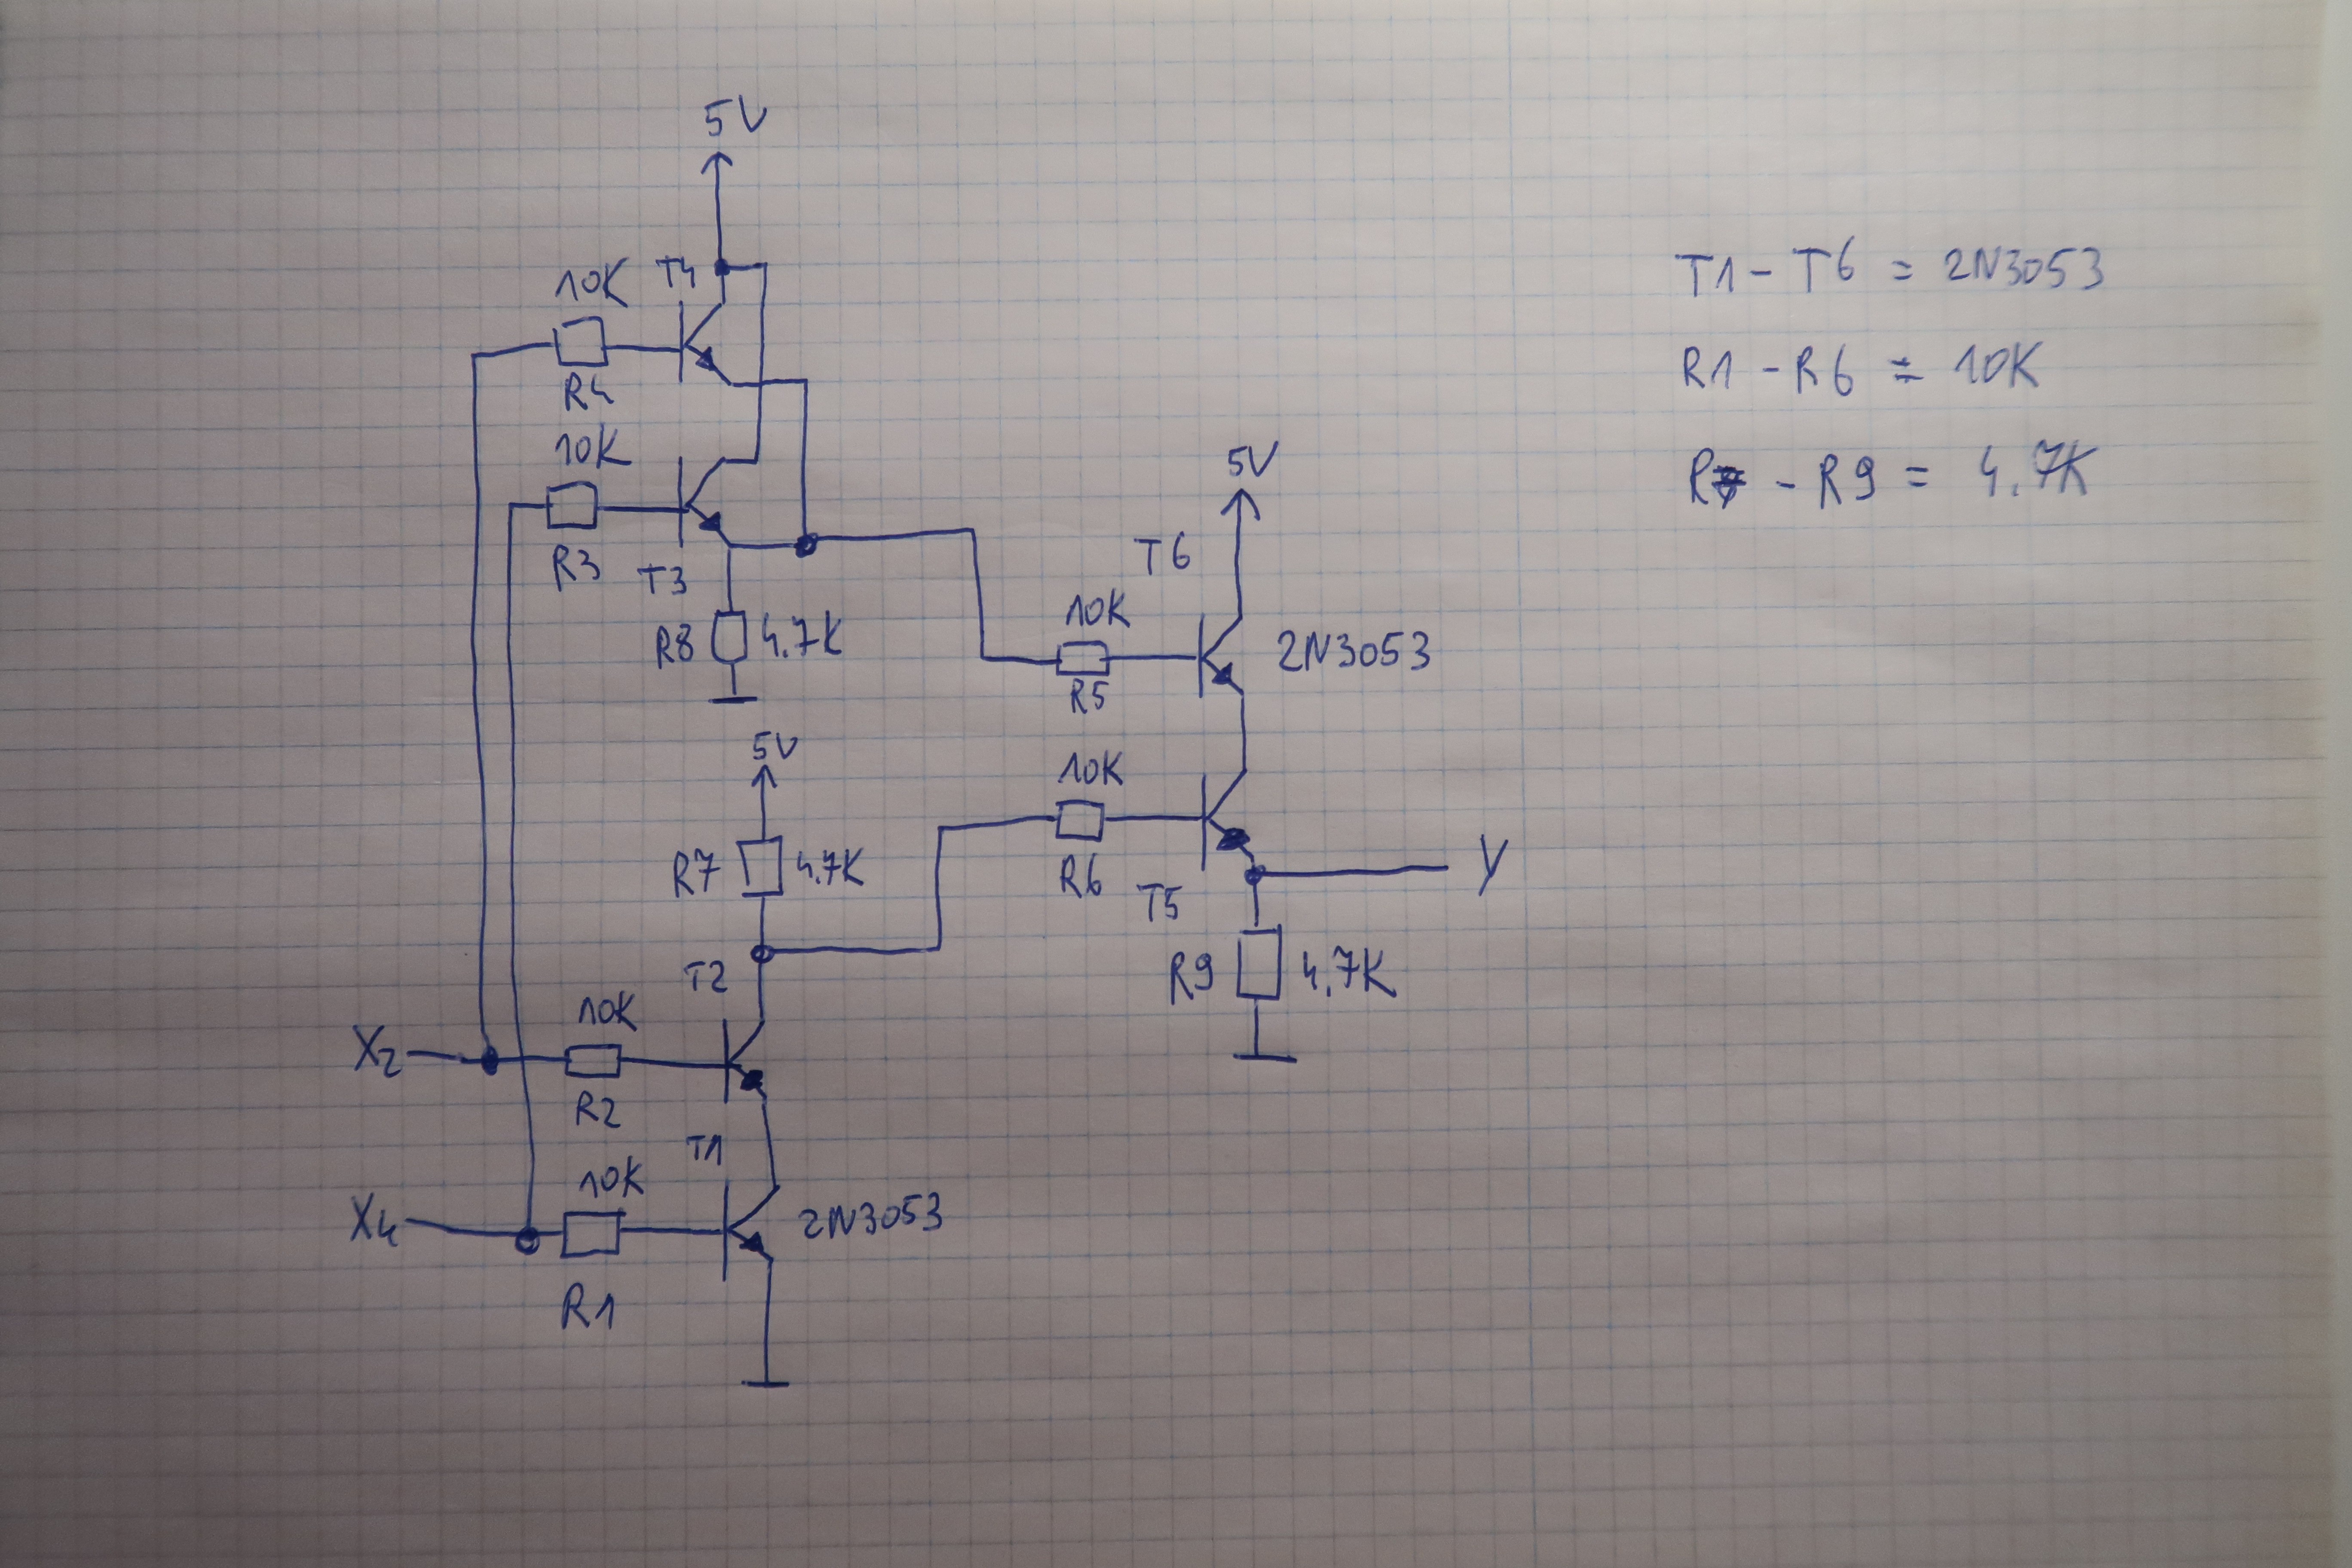 5V
10K T4
R4
10K
R3 T3
R8 4.7K
5V
T6
10K
R5
2N3053
5V
R7 4.7K
10K
R6
T5
Y
R9 4.7K
T2
X2
10K
R2
T1
X4
10K
R1
2N3053
T1 - T6 = 2N3053
R1 - R6 = 10K
R7 - R9 = 4.7K